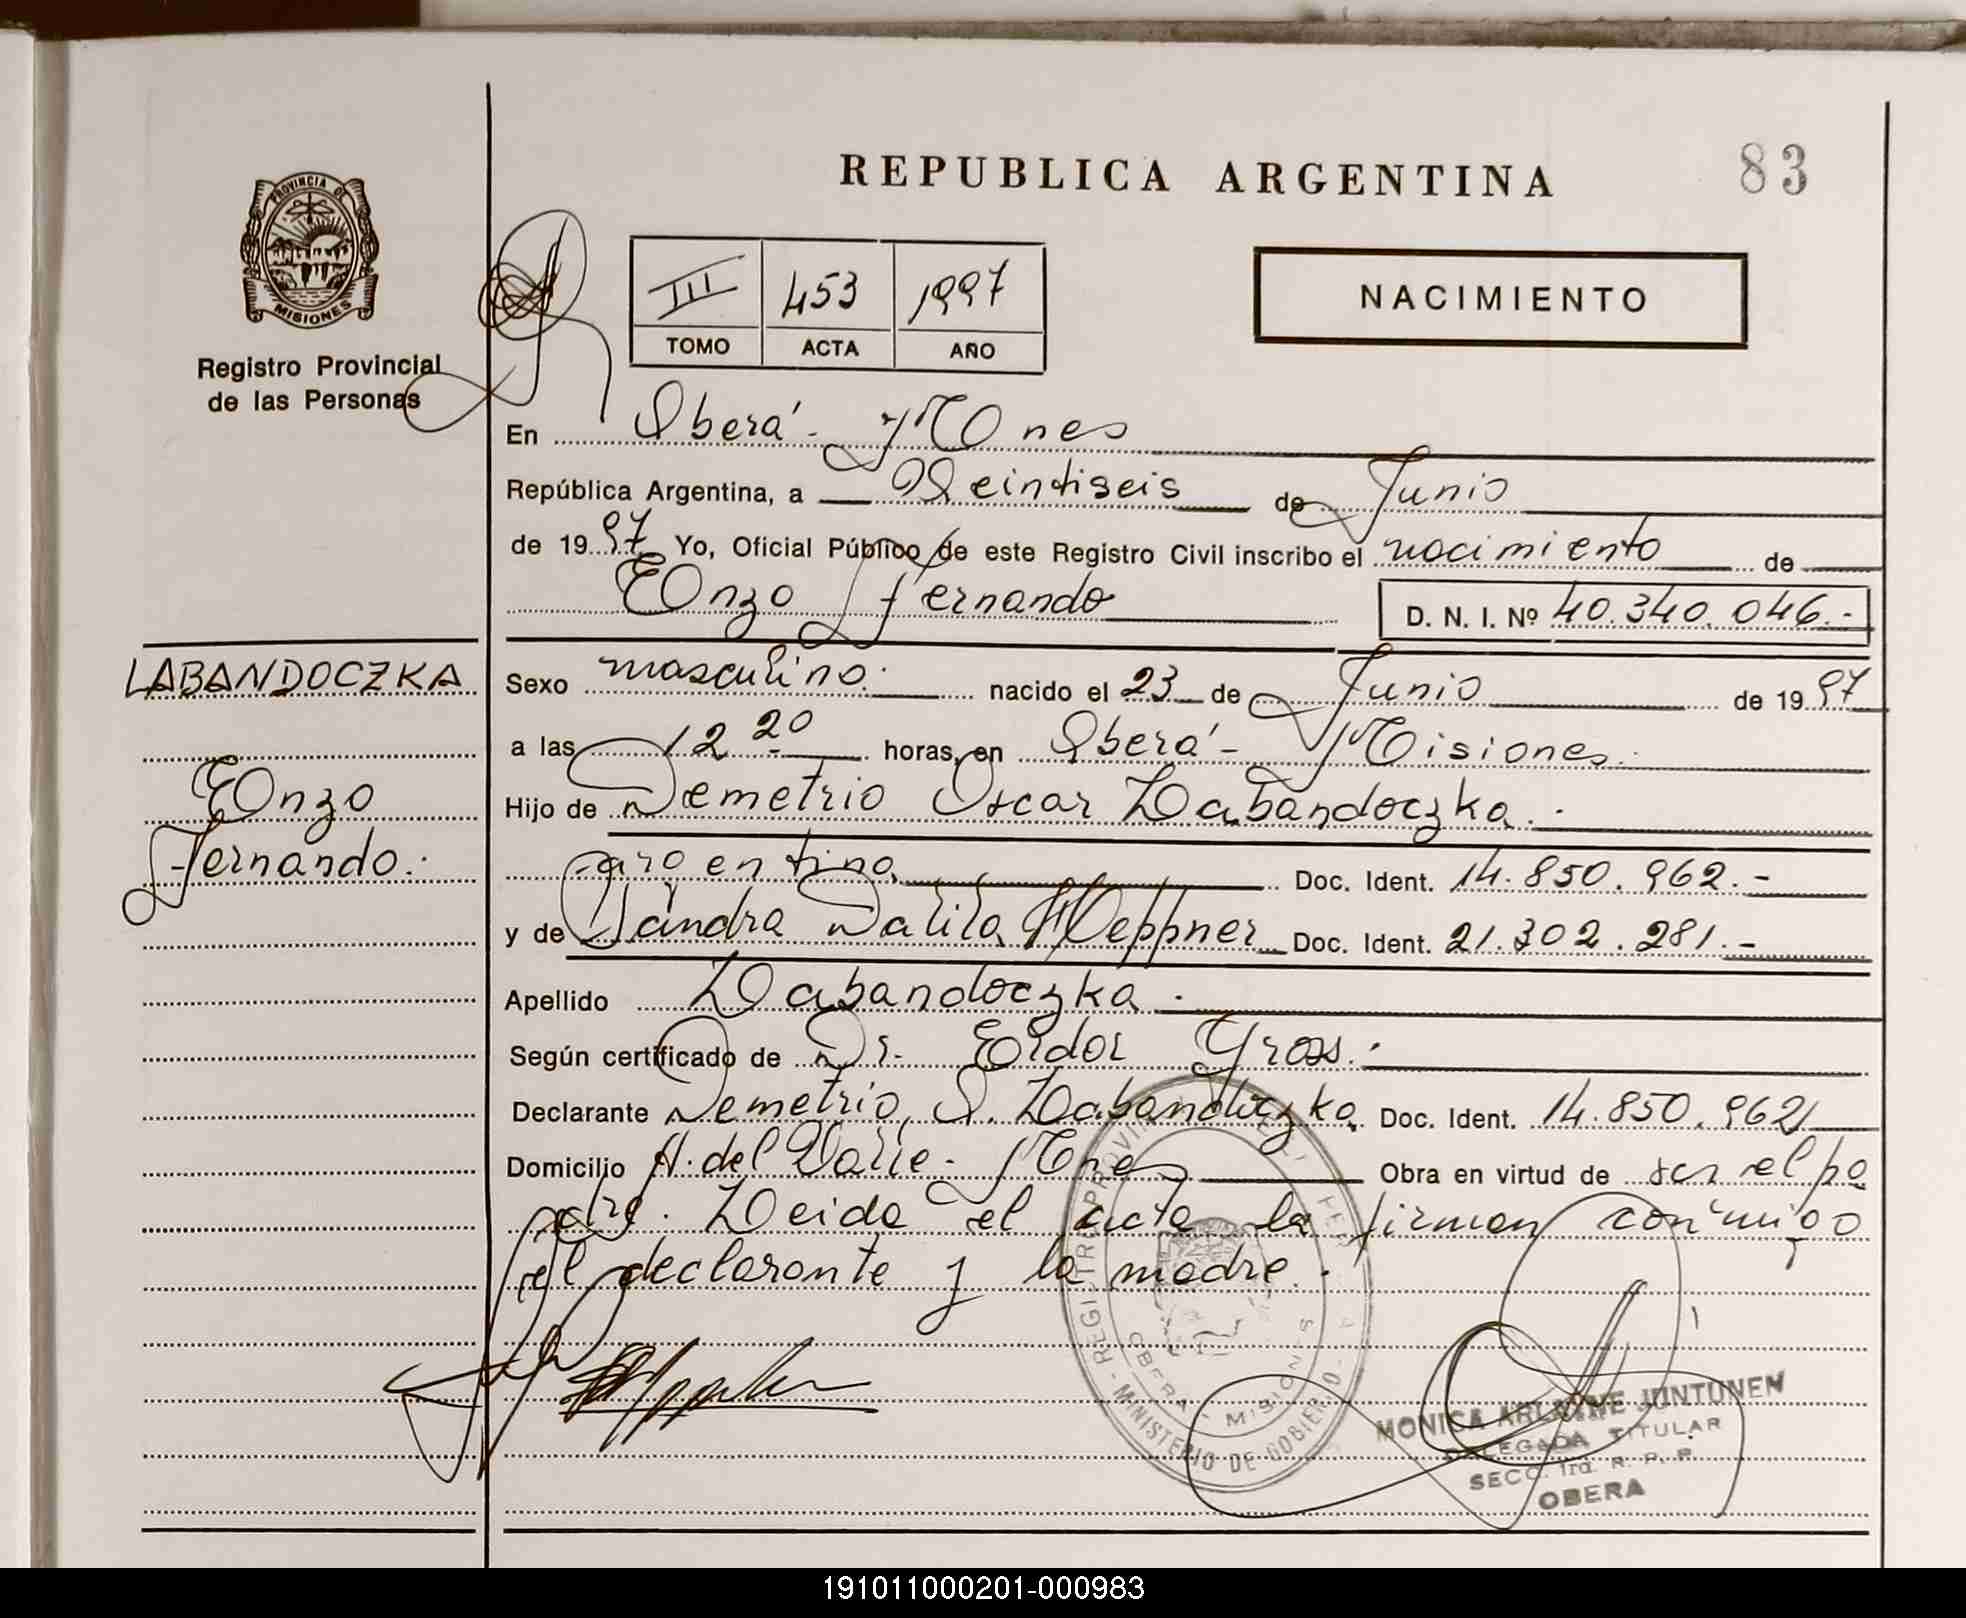 REPUBLICA ARGENTINA
83
PROVINCIA DE
MISIONES
Registro Provincial
de las Personas
III 453 1997
TOMO ACTA AÑO
NACIMIENTO
En Oberá - Mones
República Argentina, a Veintiseis de Junio
de 1997 Yo, Oficial Público de este Registro Civil inscribo el nacimiento de
Enzo Fernando D. N. I. Nº 40.340.046.-
LABANDOCZKA
Enzo
Fernando.
Sexo masculino. nacido el 23 de Junio de 1997
a las 12 20 horas, en Oberá - Misiones.
Hijo de Demetrio Oscar Labandoczka.
argentino Doc. Ident. 14.850.962.-
y de Sandra Dalila Heppner Doc. Ident. 21.302.281.-
Apellido Labandoczka.
Según certificado de Dr. Eidor Gross.
Declarante Demetrio O. Labandoczka Doc. Ident. 14.850.962
Domicilio A. del Valle - Mnes Obra en virtud de ser el pa
dre. Leida el acta la firman conmigo
el declarante y la madre.
REGISTRO PROVINCIAL
OBERA - MISIONES
MINISTERIO DE GOBIERNO
MONICA ARLAYNE JUNTUNEN
DELEGADA TITULAR
SECC. 1ra. R. P. P.
OBERA
191011000201-000983